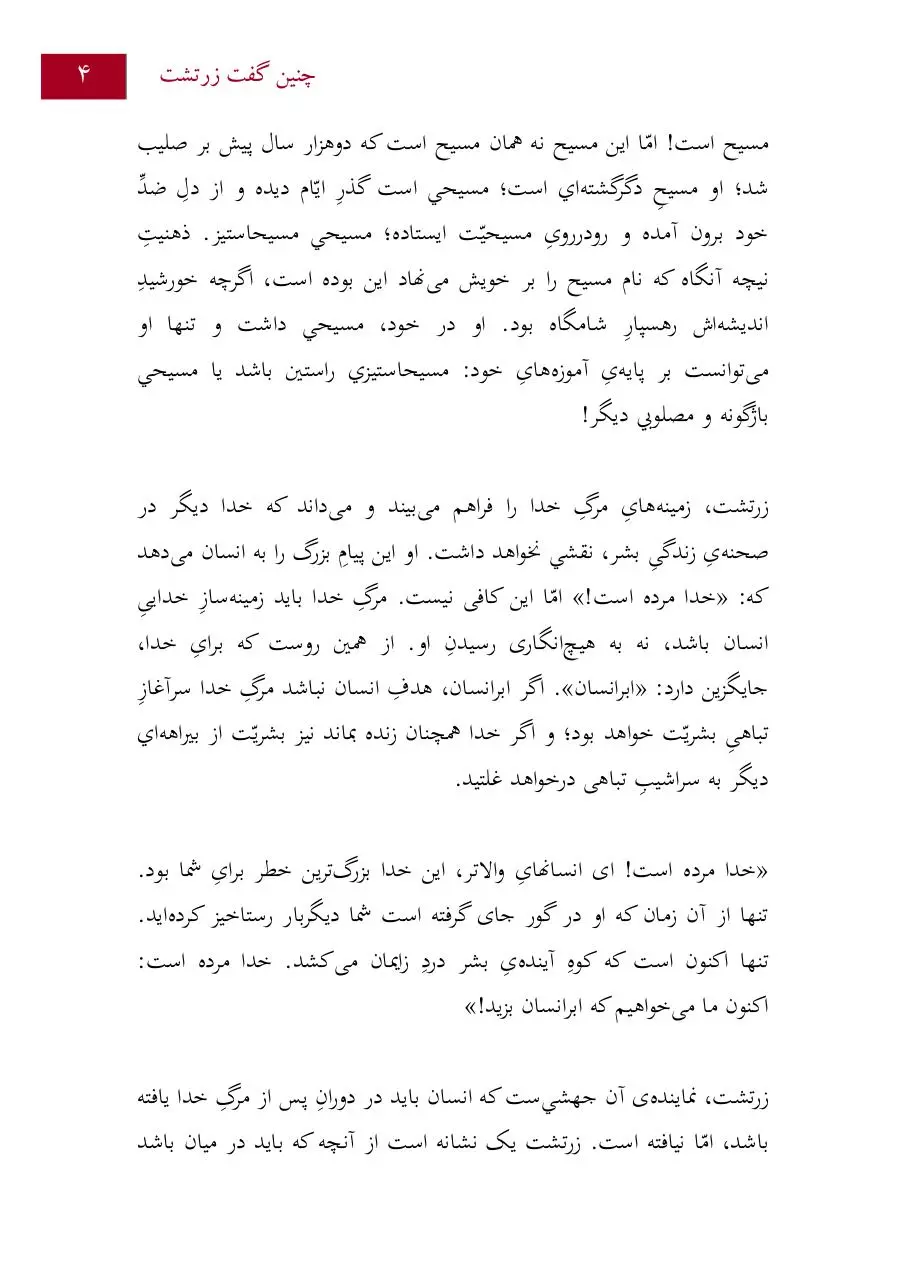 چنین گفت زرتشت ۴
مسیح است! امّا این مسیح نه همان مسیح است که دوهزار سال پیش بر صلیب
شد؛ او مسیحِ دگرگشته‌اي است؛ مسیحي است گذرِ ایّام دیده و از دلِ ضدِّ
خود برون آمده و رودررویِ مسیحیّت ایستاده؛ مسیحي مسیحاستیز. ذهنیتِ
نیچه آنگاه که نام مسیح را بر خویش می‌نهاد این بوده است، اگرچه خورشیدِ
اندیشه‌اش رهسپارِ شامگاه بود. او در خود، مسیحي داشت و تنها او
می‌توانست بر پایه‌یِ آموزه‌هایِ خود: مسیحاستیزي راستین باشد یا مسیحي
باژگونه و مصلوبي دیگر!
زرتشت، زمینه‌هایِ مرگِ خدا را فراهم می‌بیند و می‌داند که خدا دیگر در
صحنه‌یِ زندگیِ بشر، نقشي نخواهد داشت. او این پیامِ بزرگ را به انسان می‌دهد
که: «خدا مرده است!» امّا این کافی نیست. مرگِ خدا باید زمینه‌سازِ خداییِ
انسان باشد، نه به هیچ‌انگاری رسیدنِ او. از همین روست که برایِ خدا،
جایگزین دارد: «ابرانسان». اگر ابرانسان، هدفِ انسان نباشد مرگِ خدا سرآغازِ
تباهیِ بشریّت خواهد بود؛ و اگر خدا همچنان زنده بماند نیز بشریّت از بیراهه‌اي
دیگر به سراشیبِ تباهی درخواهد غلتید.
«خدا مرده است! ای انسانهایِ والاتر، این خدا بزرگ‌ترین خطر برایِ شما بود.
تنها از آن زمان که او در گور جای گرفته است شما دیگربار رستاخیز کرده‌اید.
تنها اکنون است که کوهِ آینده‌یِ بشر دردِ زایمان می‌کشد. خدا مرده است:
اکنون ما می‌خواهیم که ابرانسان بزید!»
زرتشت، نماینده‌ی آن جهشي‌ست که انسان باید در دورانِ پس از مرگِ خدا یافته
باشد، امّا نیافته است. زرتشت یک نشانه است از آنچه که باید در میان باشد